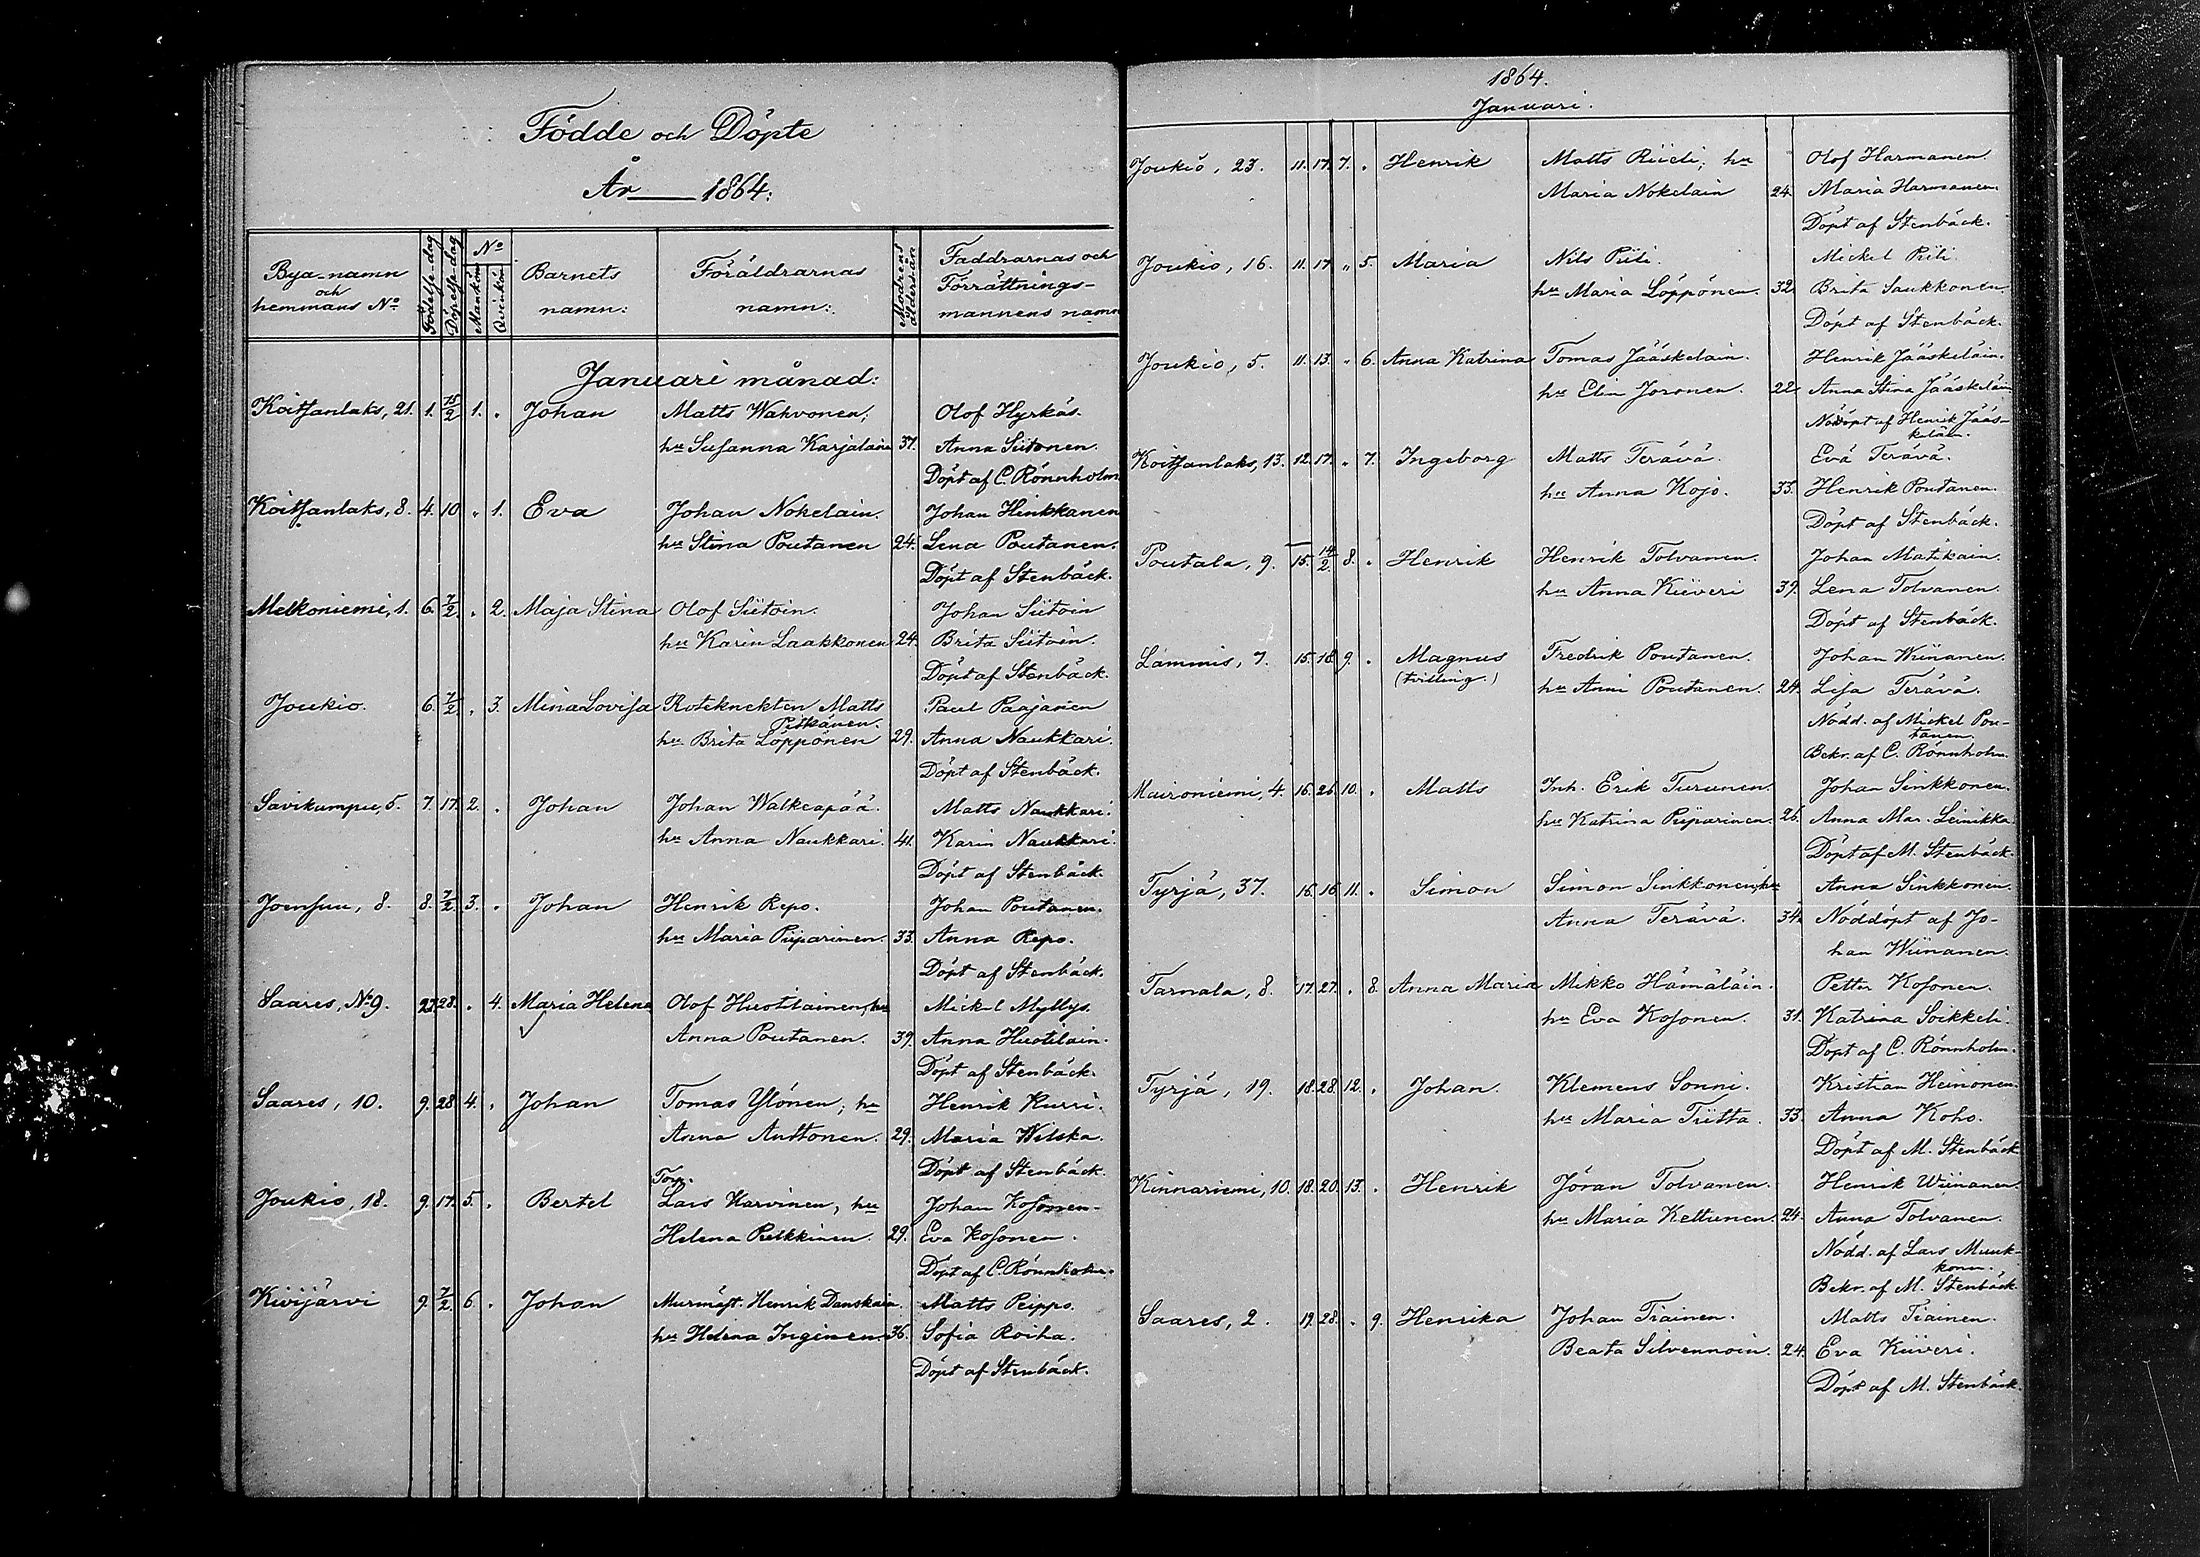 Födde och Döpte
År 1864.
Bya-namn och hemmans No
Födelse dag
Döpelse dag
No
Mankön
Qvinkön
Barnets namn:
Föräldrarnas namn:
Modrens ålderår
Faddrarnas och Förrättnings-mannens namn
Januari månad:
Koitsanlaks, 21. 1. 15/2 1. . Johan Matts Wahvonen, Olof Hyrkäs.
hu Susanna Karjalain 37. Anna Siitonen.
Döpt af C. Rönnholm
Koitsanlaks, 8. 4. 10 „ 1. Eva Johan Nokelain. Johan Hinkkanen
hu Stina Poutanen 24. Lena Poutanen.
Döpt af Stenbäck.
Melkoniemi, 1. 6. 7/2. „ 2. Maja Stina Olof Siitoin. Johan Siitoin
hu Karin Laakkonen 24. Brita Siitoin.
Döpt af Stenbäck.
Joukio. 6. 7/2. „ 3. Mina Lovisa Roteknekten Matts Paul Paajanen
Pitkänen.
hu Brita Löppönen 29. Anna Naukkari.
Döpt af Stenbäck.
Savikumpu, 5. 7. 17. 2. . Johan Johan Walkeapää. Matts Naukkari.
hu Anna Naukkari. 41. Karin Naukkari.
Döpt af Stenbäck.
Joensuu, 8. 8. 7/2 3. . Johan Henrik Repo. Johan Poutanen.
hu Maria Piiparinen. 33. Anna Repo.
Döpt af Stenbäck.
Saares, No 9. 28. „ 4. Maria Helena Olof Huotilainen, hu Mickel Myllys.
Anna Poutanen. 39. Anna Huotilain.
Döpt af Stenbäck.
Saares, 10. 9. 28 4. . Johan Tomas Ylönen, hu Henrik Kurri.
Anna Anttonen. 29. Maria Wilska.
Döpt af Stenbäck.
Torp.
Joukio, 18. 9. 17. 5. . Bertel Lars Karvinen, hu Johan Kosonen
Helena Pulkkinen. 29. Eva Kosonen.
Döpt af C. Rönnholm.
Kivijärvi 9. 7/2. 6. . Johan Murmäst. Henrik Danskain. Matts Peippo.
hu Helena Inginen. 36. Sofia Roiha.
Döpt af Stenbäck.
1864.
Januari.
Joukio, 23. 11. 17. 7. . Henrik Matts hu Olof Harmanen.
Maria Nokelain 24. Maria Harmanen.
Döpt af Stenbäck.
Joukio, 16. 11. 17 „ 5. Maria Nils Piili. Mickel Piili.
hu Maria Löppönen. 32. Brita Saukkonen.
Döpt af Stenbäck.
Joukio, 5. 11. 13. „ 6. Anna Katrina Tomas Jääskelain. Henrik Jääskeläin.
hu Elin Joronen. 22. Anna Stina Jääskeläin
Nöddöpt af Henrik Jääs-
keläin.
Koitsanlaks, 13. 12. 17. „ 7. Ingeborg Matts Terävä. Eva Terävä.
hu Anna Kojo. 33. Henrik Poutanen.
Döpt af Stenbäck.
Poutala, 9. 15. 14/2. 8. . Henrik Henrik Tolvanen. Johan Matikain.
hu Anna Kiiveri 39. Lena Tolvanen.
Döpt af Stenbäck.
Lammis, 7. 15. 18 9. . Magnus Fredrik Poutanen. Johan Wiinanen.
(tvilling.)
hu Anni Poutanen. 24. Lisa Terävä.
Nödd. af Mickel Pou-
tanen.
Bekr. af C. Rönnholm.
Maironiemi, 4. 16. 26. 10. . Matts Inh. Erik Turunen. Johan Sinkkonen.
hu Katrina Piiparinen. 26. Anna Mar. Leinikka
Döpt af M. Stenbäck.
Tyrjä, 37. 16. 16. 11. . Simon Simon Sinkkonen, hu Anna Sinkkonen.
Anna Terävä. 34. Nöddöpt af Jo-
han Wiinanen.
Tarnala, 8. 17. 27. „ 8. Anna Maria Mikko Hämäläin. Petter Kosonen.
hu Eva Kosonen. 31. Katrina Soikkeli.
Döpt af C. Rönnholm.
Tyrjä, 19. 18. 28. 12. . Johan. Klemens Sonni. Kristian Heinonen.
hu Maria Tiitta. 33. Anna Koho.
Döpt af M. Stenbäck
Kinnariemi, 10. 18. 20. 13. . Henrik Jöran Tolvanen. Henrik Wiinanen
hu Maria Kettunen. 24. Anna Tolvanen.
Nödd. af Lars Muuk-
konen.
Bekr. af M. Stenbäck
Saares, 2. 19. 28. „ 9. Henrika Johan Tiainen. Matts Tiainen.
Beata Silvennoin. 24. Eva Kiiveri.
Döpt af M. Stenbäck.